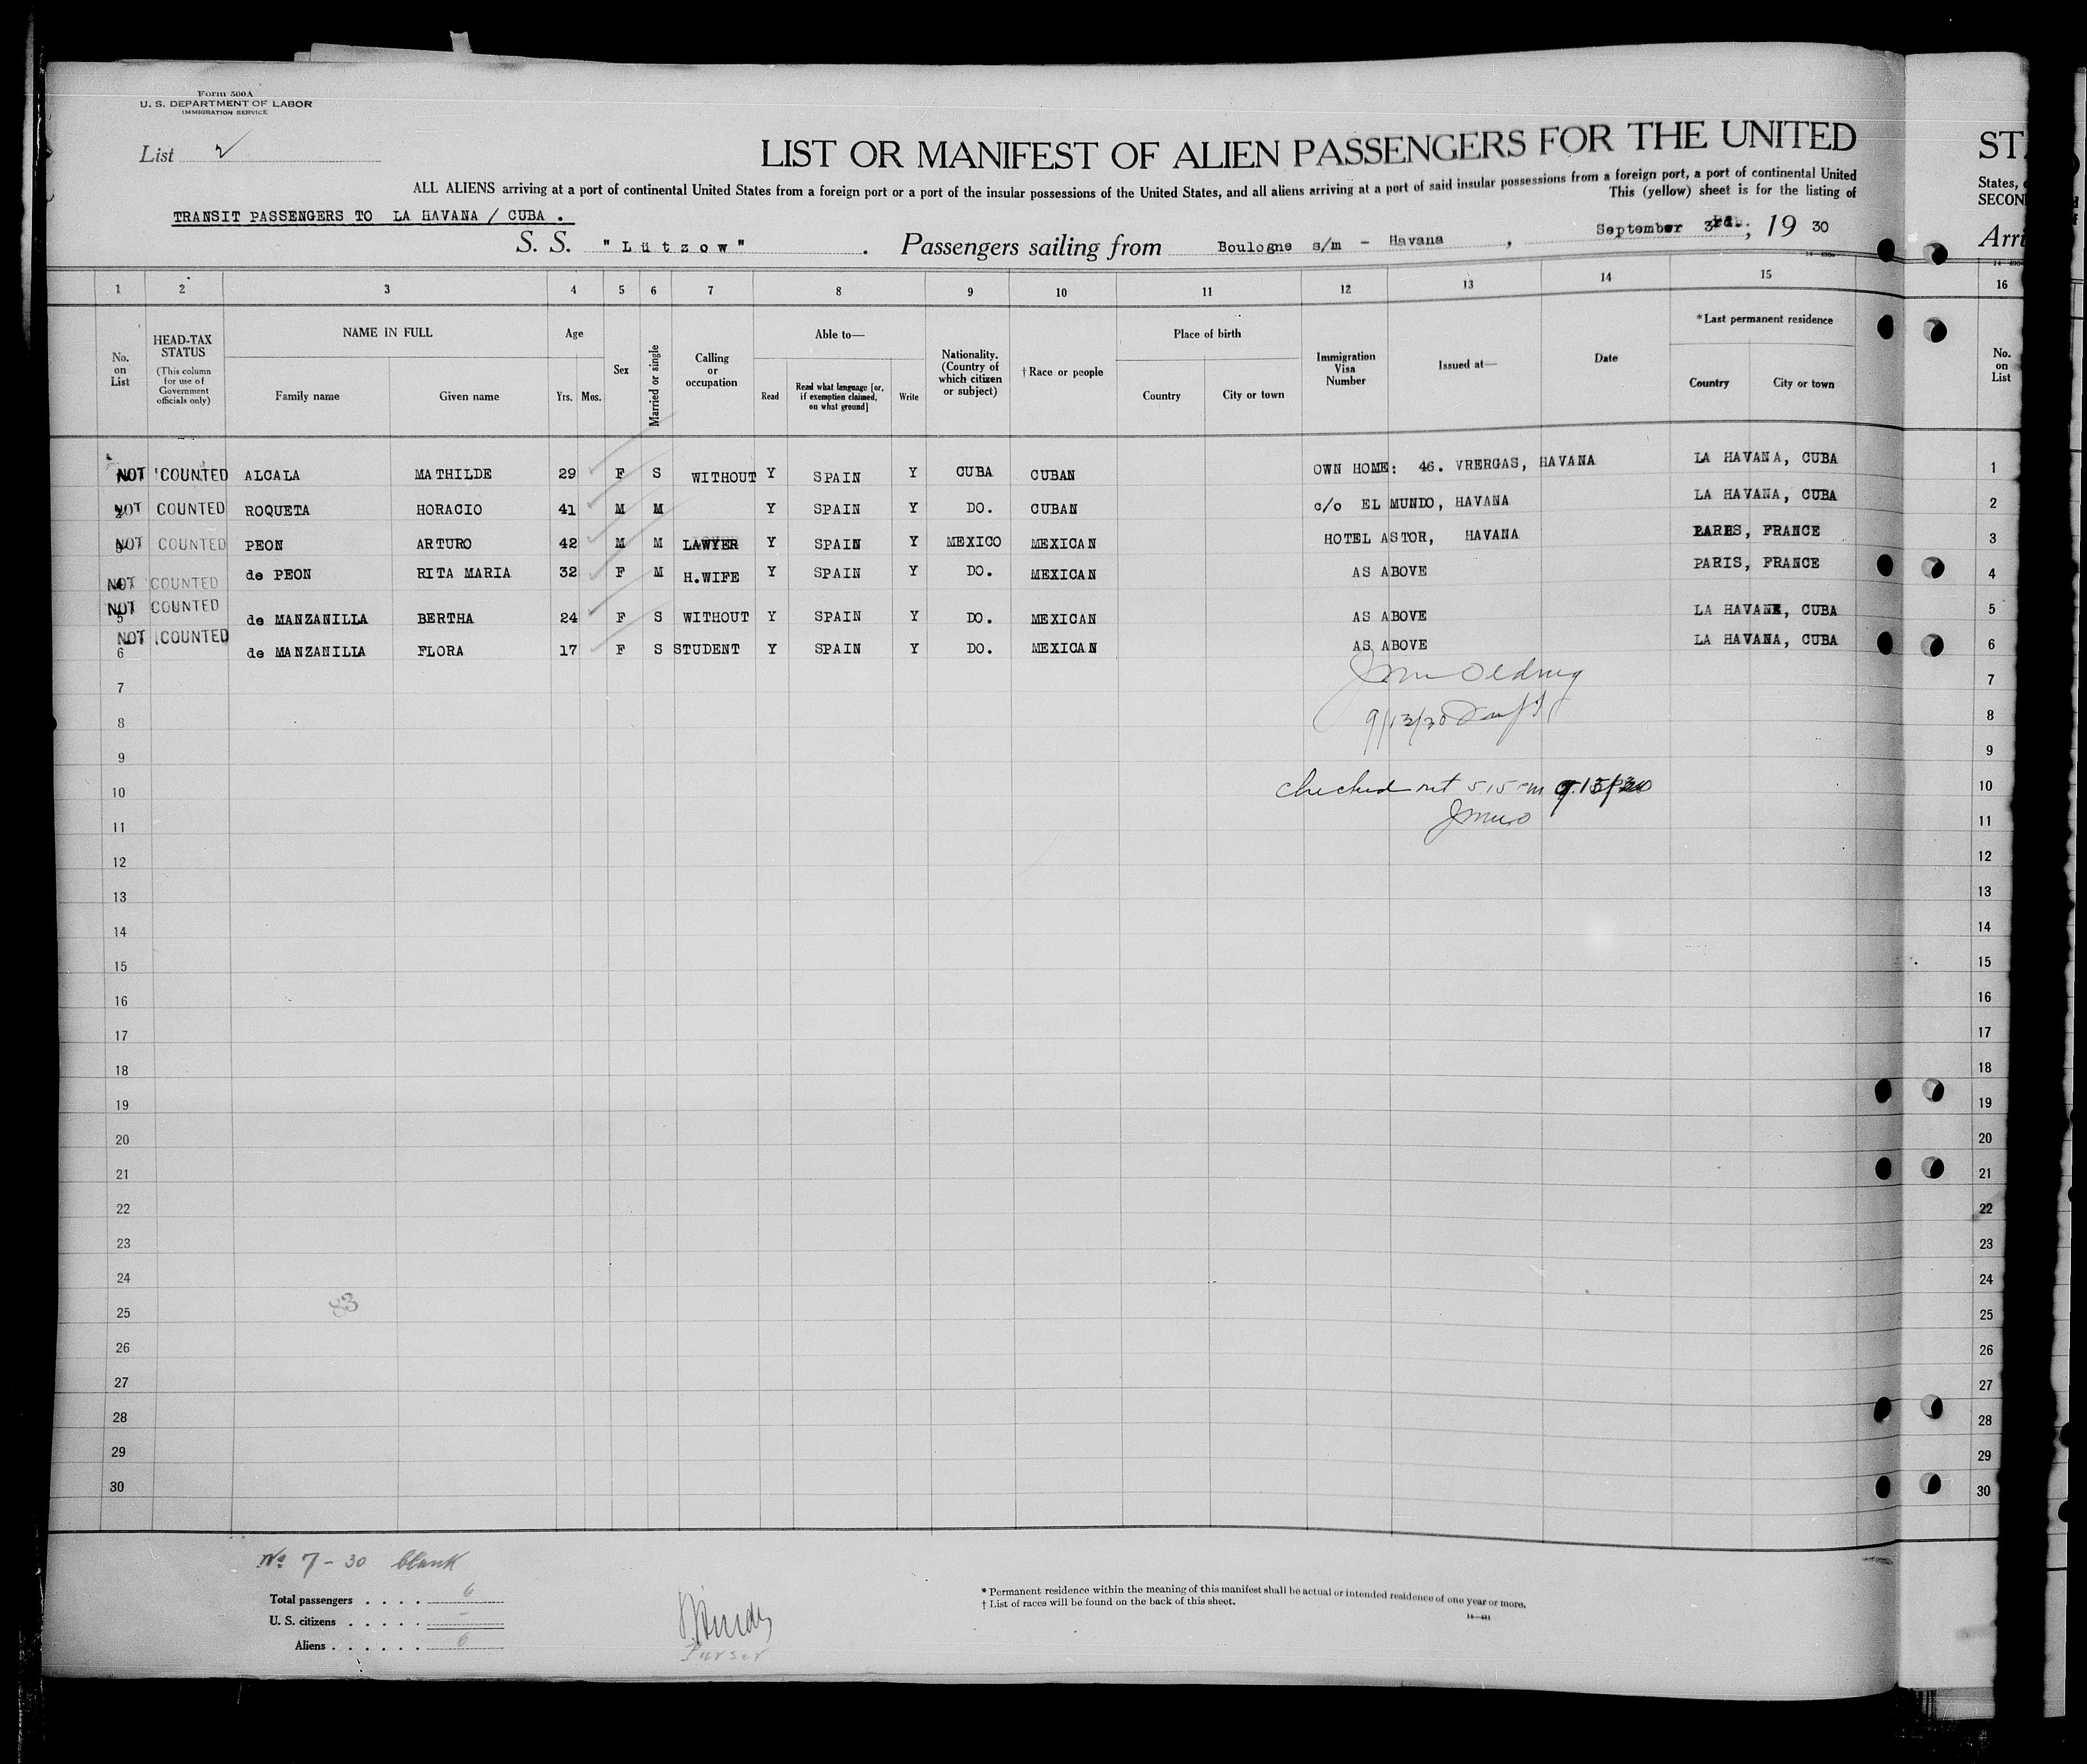 Form 500A
U. S. DEPARTMENT OF LABOR
IMMIGRATION SERVICE
List
LIST OR MANIFEST OF ALIEN PASSENGERS FOR THE UNITED
ALL ALIENS arriving at a port of continental United States from a foreign port or a port of the insular possessions of the United States, and all aliens arriving at a port of said insular possessions from a foreign port, a port of continental United
This (yellow) sheet is for the listing of
TRANSIT PASSENGERS TO LA HAVANA / CUBA .
S. S. "Lützow" . Passengers sailing from Boulogne s/m - Havana , September 3rd., 19 30
1 2 3 4 5 6 7 8 9 10 11 12 13 14 15
No. on List
HEAD-TAX STATUS
(This column for use of Government officials only)
NAME IN FULL
Family name Given name
Age
Yrs. Mos.
Sex
Married or single
Calling or occupation
Able to—
Read
Read what language [or, if exemption claimed, on what ground]
Write
Nationality. (Country of which citizen or subject)
† Race or people
Place of birth
Country City or town
Immigration Visa Number
Issued at—
Date
* Last permanent residence
Country City or town
NOT COUNTED ALCALA MATHILDE 29 F S WITHOUT Y SPAIN Y CUBA CUBAN OWN HOME: 46. VRERGAS, HAVANA LA HAVANA, CUBA
NOT COUNTED ROQUETA HORACIO 41 M M Y SPAIN Y DO. CUBAN c/o EL MUNDO, HAVANA LA HAVANA, CUBA
NOT COUNTED PEON ARTURO 42 M M LAWYER Y SPAIN Y MEXICO MEXICAN HOTEL ASTOR, HAVANA PARIS, FRANCE
NOT COUNTED de PEON RITA MARIA 32 F M H.WIFE Y SPAIN Y DO. MEXICAN AS ABOVE PARIS, FRANCE
NOT COUNTED 5 de MANZANILLA BERTHA 24 F S WITHOUT Y SPAIN Y DO. MEXICAN AS ABOVE LA HAVANE, CUBA
NOT COUNTED 6 de MANZANILLA FLORA 17 F S STUDENT Y SPAIN Y DO. MEXICAN AS ABOVE LA HAVANA, CUBA
7
8
9/13/30
9
10 checked out 5.15 9.13/30
11
12
13
14
15
16
17
18
19
20
21
22
23
24
25 83
26
27
28
29
30
No 7 - 30 blank
Total passengers . . . . 6
U. S. citizens . . . . . –
Aliens . . . . . . 6
Purser
* Permanent residence within the meaning of this manifest shall be actual or intended residence of one year or more.
† List of races will be found on the back of this sheet.
ST
States,
SECON
Arri
16
No. on List
1
2
3
4
5
6
7
8
9
10
11
12
13
14
15
16
17
18
19
20
21
22
23
24
25
26
27
28
29
30